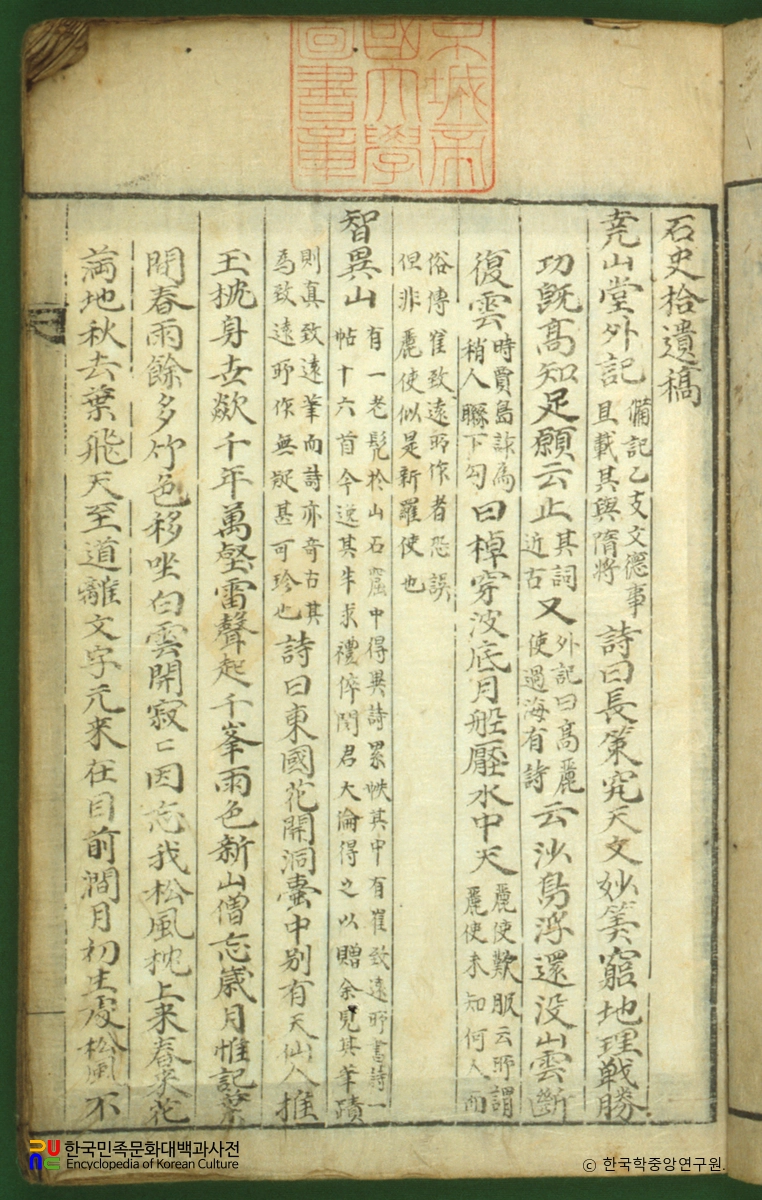 京城帝
國大學
圖書章
石史拾遺稿
堯山堂外記備記乙支文德事且載其與隋將詩曰長策究天文妙筭窮地理戰勝
功旣高知足願云止其詞近古又外記曰高麗使過海有詩云沙鳥浮還没山雲斷
復雲時賈島詐為梢人聯下勾曰棹穿波底月船壓水中天麗使歎服云所謂麗使未知何人而
俗傳崔致遠所作者恐誤但非麗使似是新羅使也
智異山有一老髡於山石窟中得異詩累帙其中有崔致遠所書詩一帖十六首今逸其半求禮倅閔君大淪得之以贈余見其筆蹟
則眞致遠筆而詩亦奇古其為致遠所作無疑甚可珍也詩曰東國花開洞壷中別有天仙人推
玉枕身世欻千年萬壑雷聲起千峯雨色新山僧忘歲月惟記葉
間春雨餘多竹色移坐白雲開寂〻因忘我松風枕上來春來花
滿地秋去葉飛天至道離文字元來在目前澗月初生處松風不
한국민족문화대백과사전
Encyclopedia of Korean Culture
© 한국학중앙연구원.